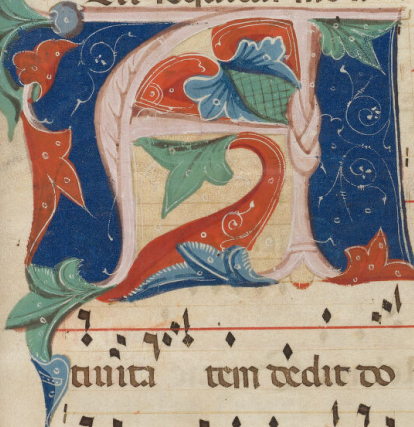 A
tiuita tem dedit do